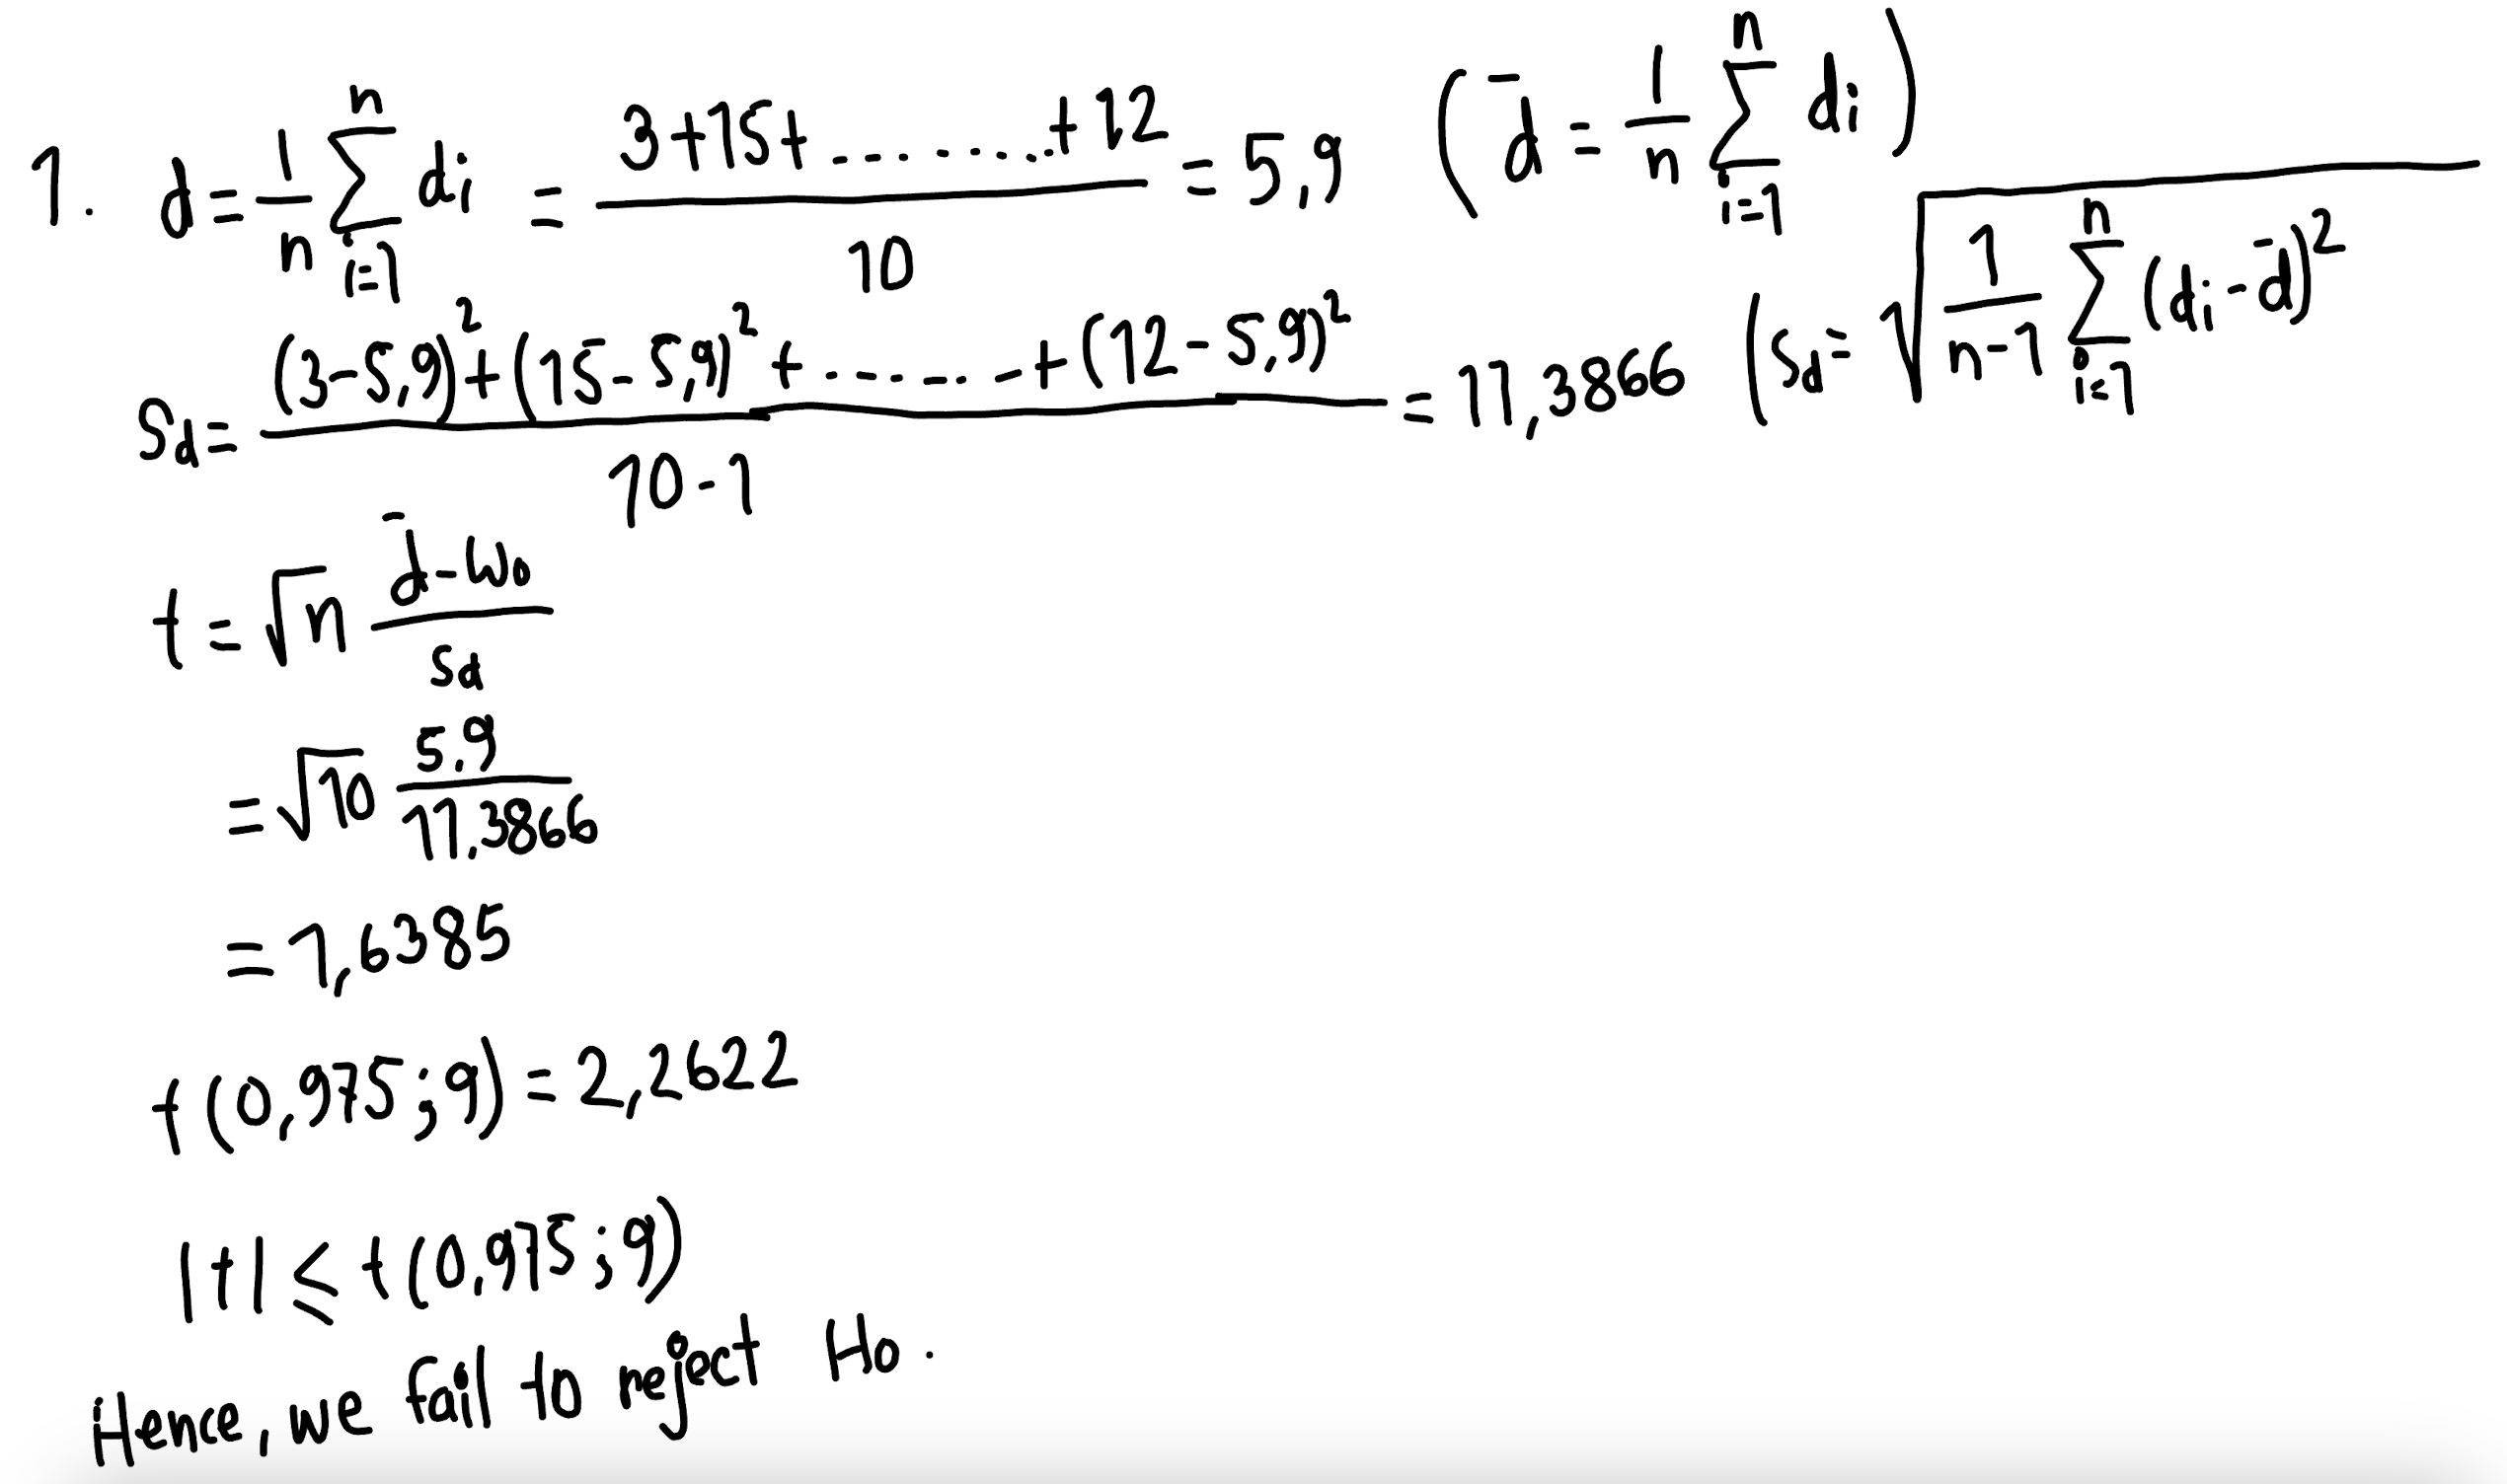 1. d = 1/n ∑_{i=1}^{n} d_i = (3+15+.........+12)/10 = 5,9 (d̄ = 1/n ∑_{i=1}^{n} d_i)
S_d = ((3-5,9)²+(15-5,9)²+.......+(12-5,9)²)/(10-1) = 11,3866 (S_d = √(1/(n-1) ∑_{i=1}^{n} (d_i-d̄)²
t = √n (d̄-W₀)/S_d
= √10 5,9/11,3866
= 1,6385
t(0,975;9) = 2,2622
|t| ≤ t(0,975;9)
Hence, we fail to reject Ho.